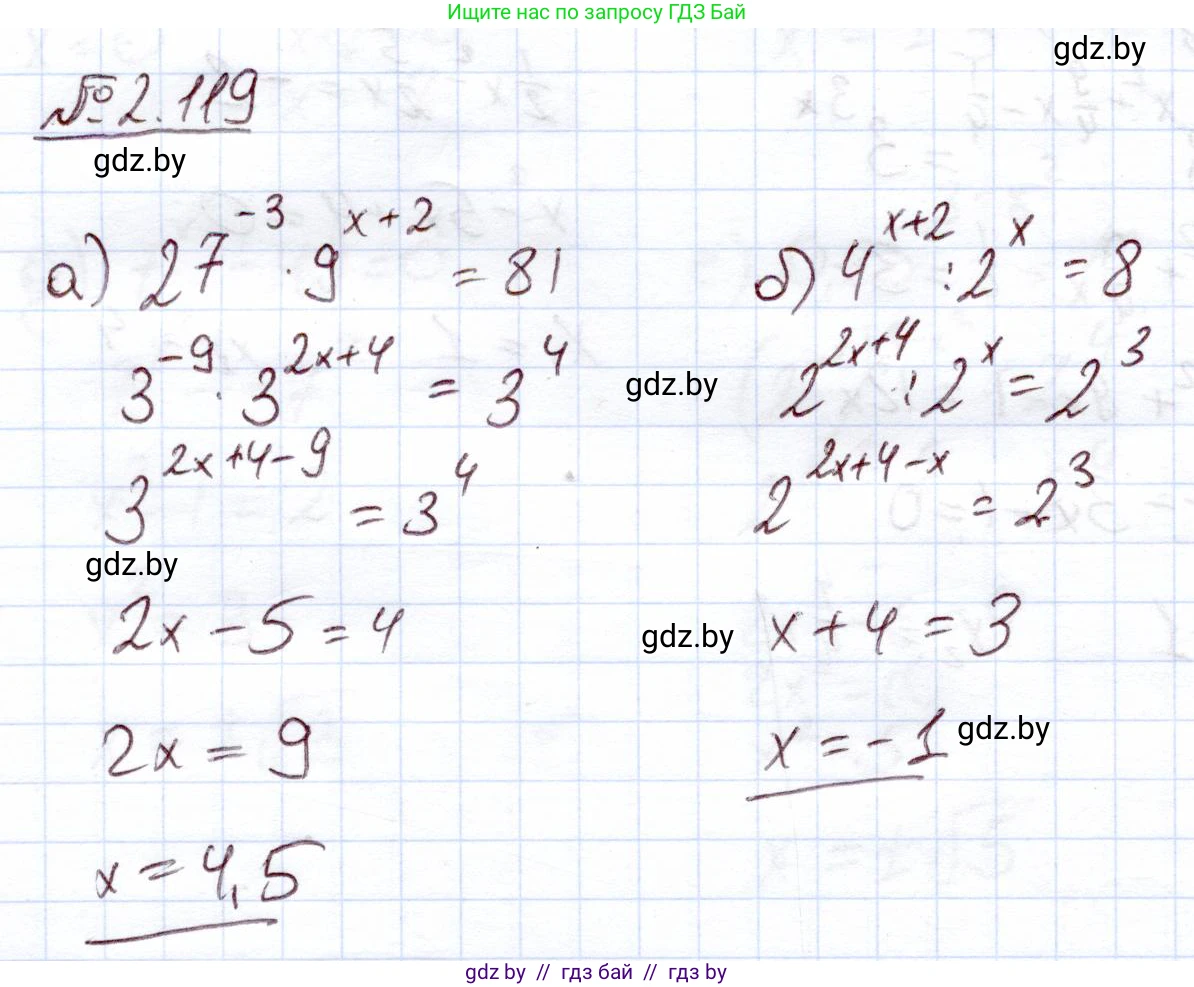 Ищите нас по запросу ГДЗ Бай
gdz.by
№ 2.119
gdz.by
а) 27^{-3} · 9^{x+2} = 81
3^{-9} · 3^{2x+4} = 3^4
3^{2x+4-9} = 3^4
gdz.by
2x - 5 = 4
2x = 9
x = 4,5
б) 4^{x+2} : 2^x = 8
gdz.by
2^{2x+4} : 2^x = 2^3
2^{2x+4-x} = 2^3
gdz.by
x + 4 = 3
x = -1
gdz.by
gdz by // гдз бай // gdz by